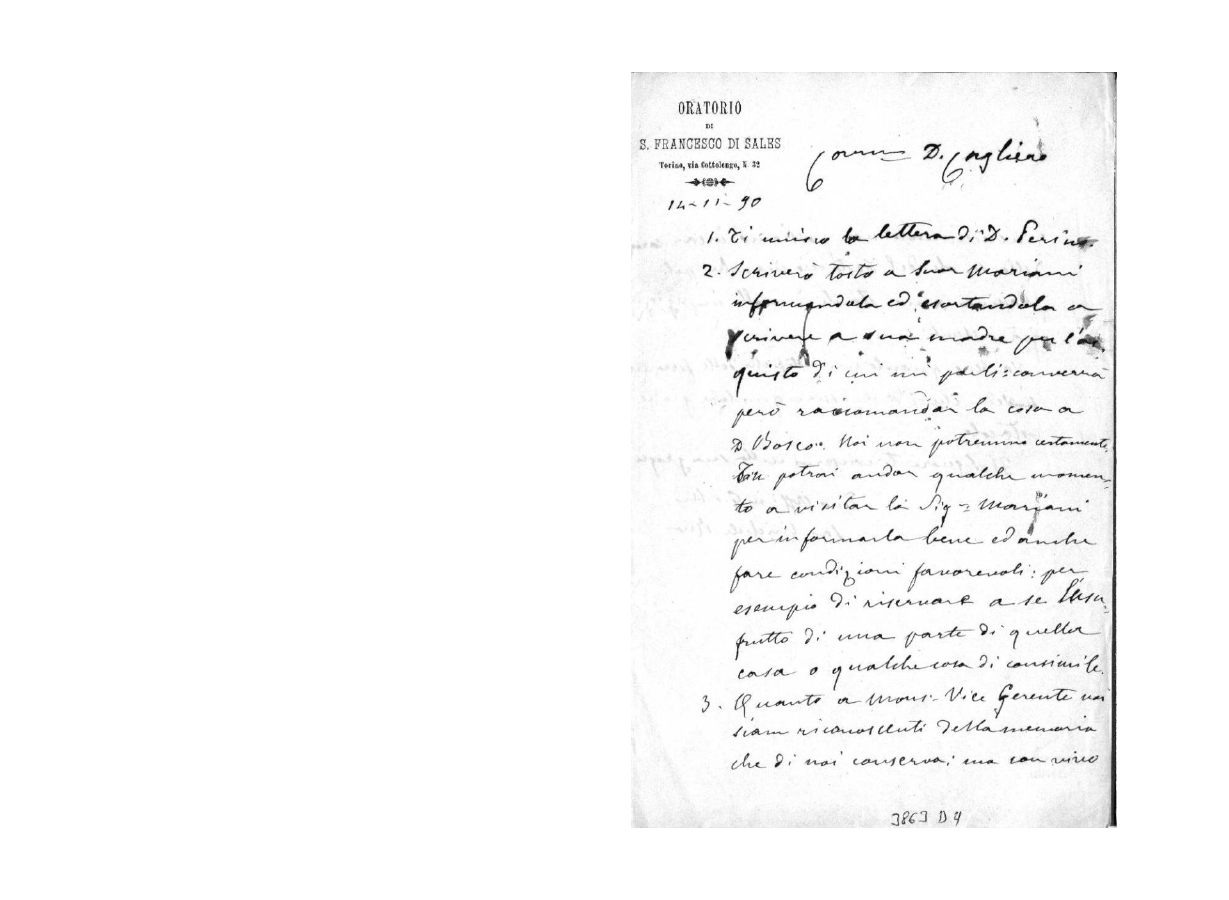 ORATORIO
DI
S. FRANCESCO DI SALES
Torino, via Cottolengo, N. 32
14-11-90
D. Cagliero
1. Ti unisco la lettera di D. Perino.
2. Scriverò tosto a Suor Mariani
informandola ed esortandola a
scrivere a sua madre per l'ac
quisto di cui mi parli: converrà
però raccomandar la cosa a
D. Bosco. Noi non potremmo certamente.
Tu potrai andar qualche momen=
to a visitar la Sig= Mariani
per informarla bene ed anche
fare condizioni favorevoli: per
esempio di riservare a se l'usu=
frutto di una parte di quella
casa o qualche cosa di consimile.
3. Quanto a Mons= Vice Gerente noi
siam riconoscenti della memoria
che di noi conserva; ma con vivo
3863 D 4